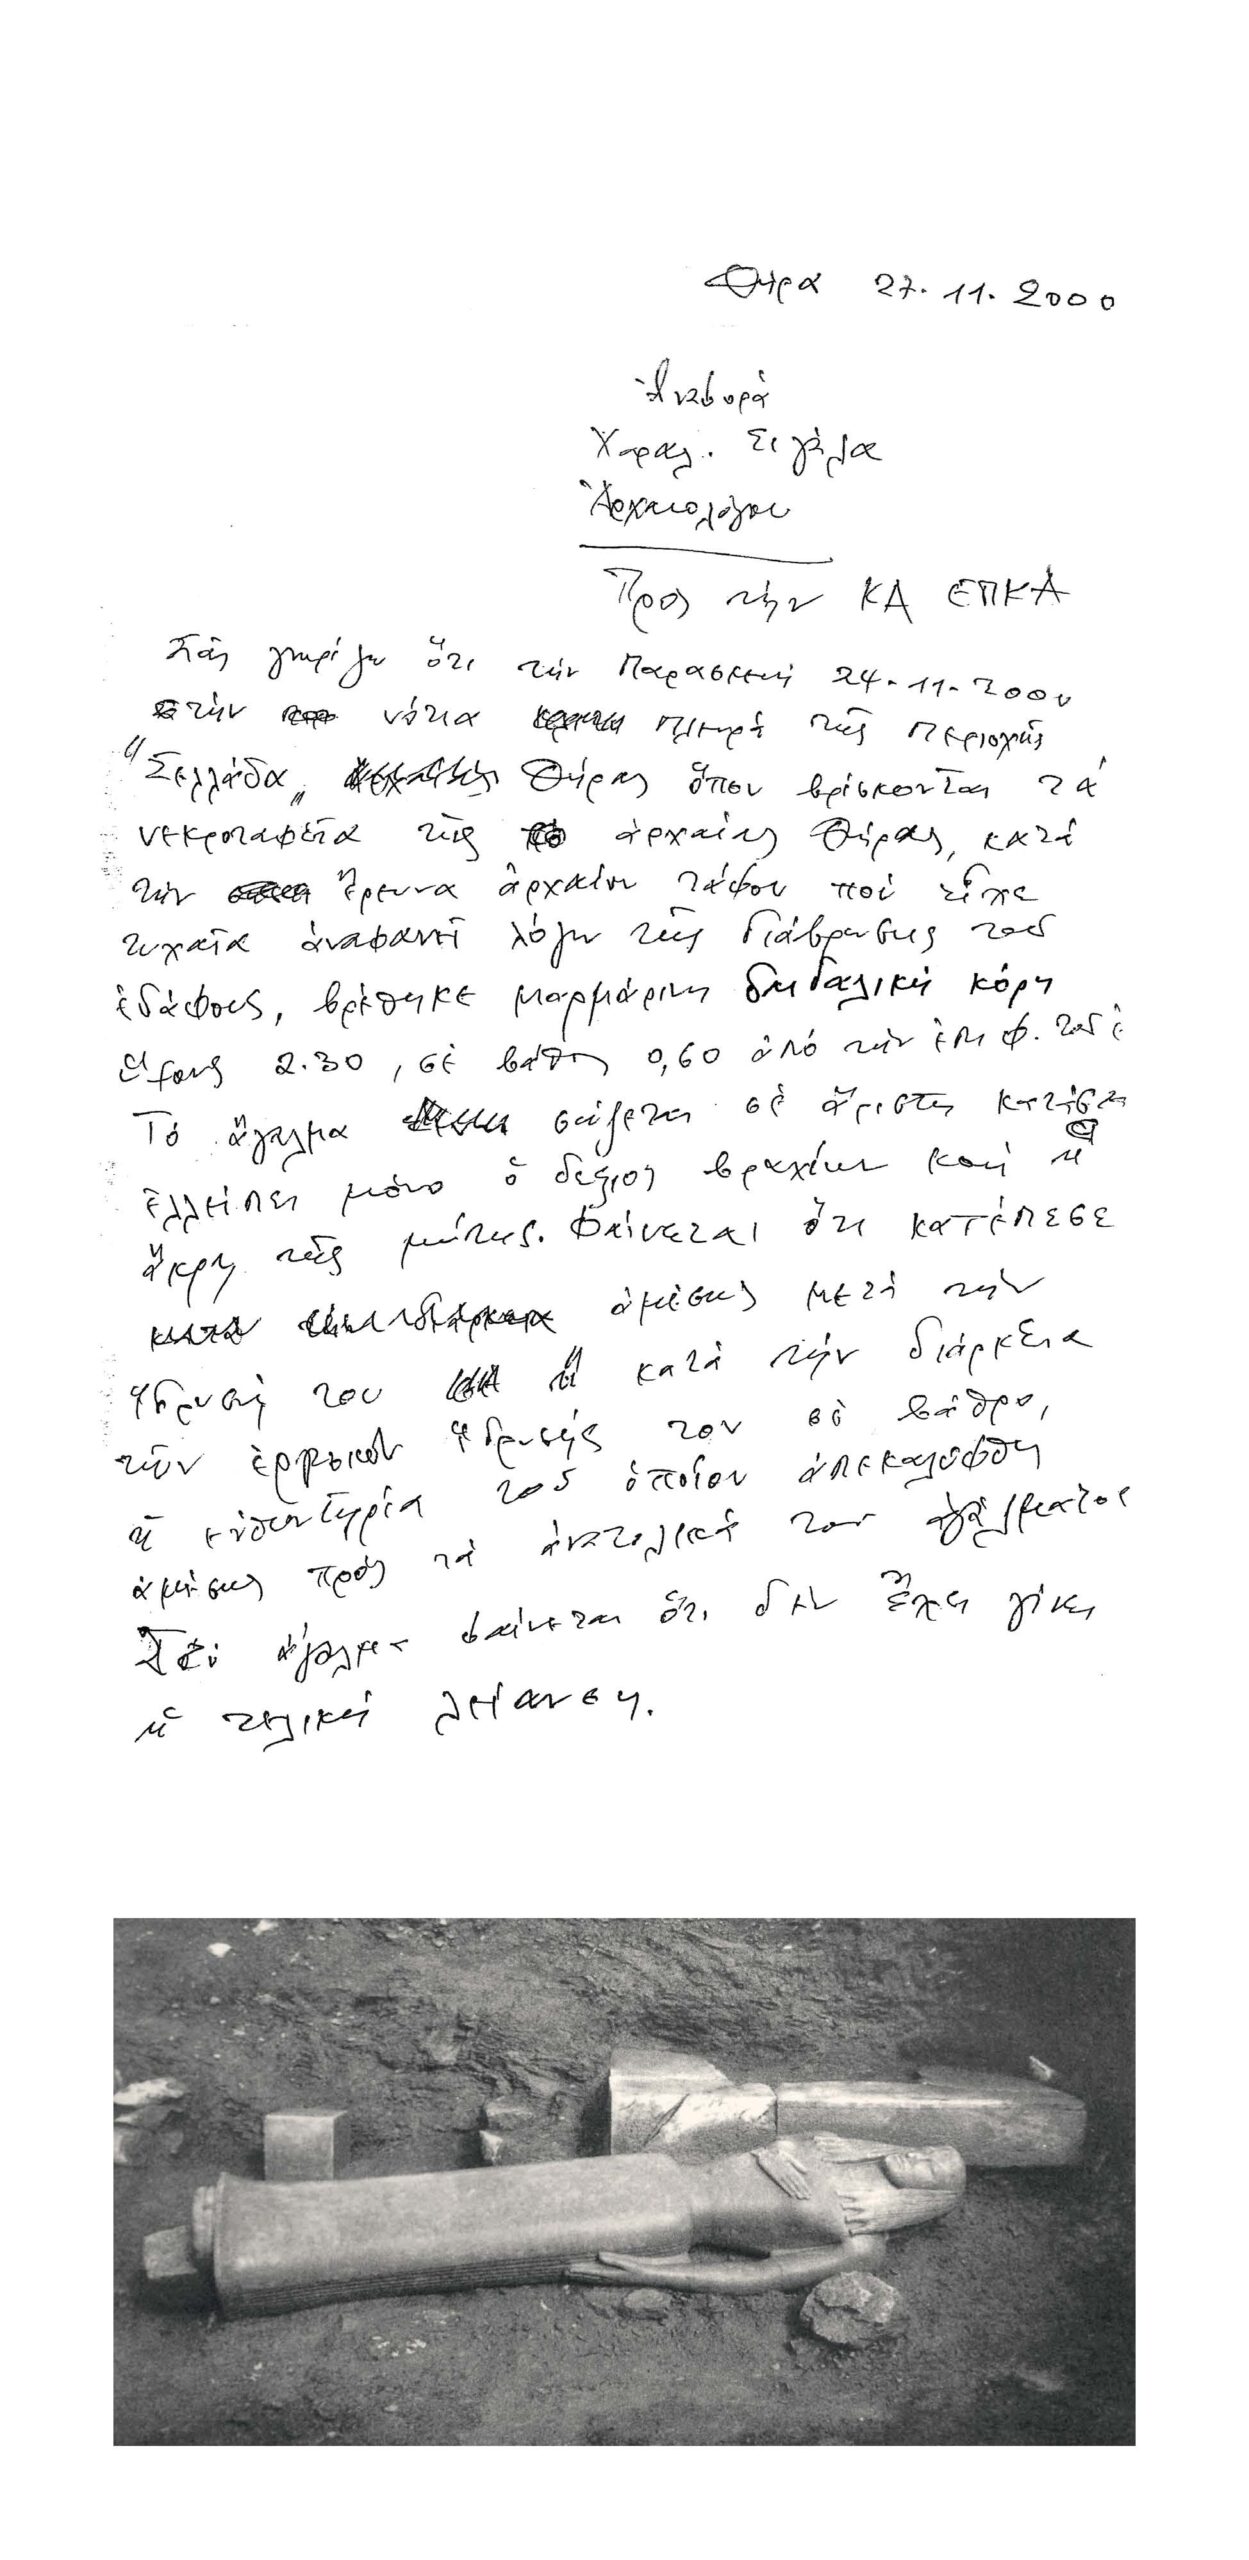 Θήρα 27.11.2000
Ἀναφορά
Χαραλ. Σιγάλα
Ἀρχαιολόγου
Πρός τήν ΚΑ ΕΠΚΑ
Σᾶς γνωρίζω ὅτι τήν Παρασκευή 24-11-2000
στήν νότια πλευρά τῆς περιοχῆς
"Σελλάδα„ Θήρας ὅπου βρίσκονται τά
νεκροταφεῖα τῆς ἀρχαίας Θήρας, κατά
τήν ἔρευνα ἀρχαίου τάφου πού εἶχε
τυχαῖα ἀναφανεῖ λόγω τῆς διάβρωσης τοῦ
ἐδάφους, βρέθηκε μαρμάρινη δαιδαλική κόρη
ὕψους 2.30, σέ βάθος 0,60 ἀπό τήν ἐπιφ. τοῦ ἐ
Τό ἄγαλμα σώζεται σέ ἄριστη κατάσταση
ἐλλείπει μόνο ὁ δεξιός βραχίων καί ἡ
ἄκρη τῆς μύτης. Φαίνεται ὅτι κατέπεσε
ἀμέσως μετά τήν
ἵδρυσή του ἤ κατά τήν διάρκεια
τῶν ἐργασιῶν ἱδρυσής του σέ βάθρο,
ἡ εὐθυντηρία τοῦ ὁποίου ἀπεκαλύφθη
ἀμέσως πρός τά ἀνατολικά του ἀγάλματος
Στό ἄγαλμα φαίνεται ὅτι δέν ἔχει γίνει
ἡ τελική λείανση.